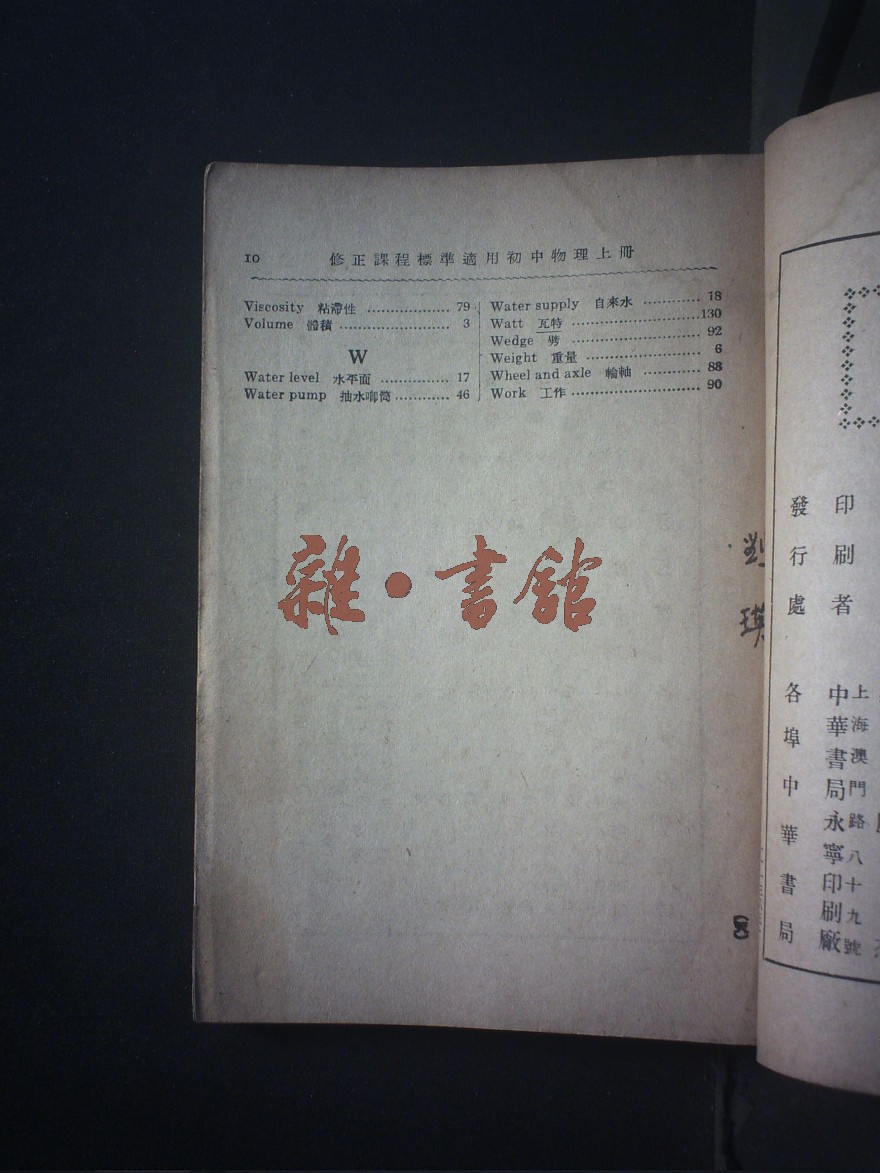 10 修正課程標準適用初中物理上冊
Viscosity 粘滯性 79
Volume 體積 3
W
Water level 水平面 17
Water pump 抽水唧筒 46
Water supply 自來水 18
Watt 瓦特 130
Wedge 劈 92
Weight 重量 6
Wheel and axle 輪軸 88
Work 工作 90
雜·書館
印刷者
上海澳門路八十九號
中華書局永寧印刷廠
發行處
各埠中華書局